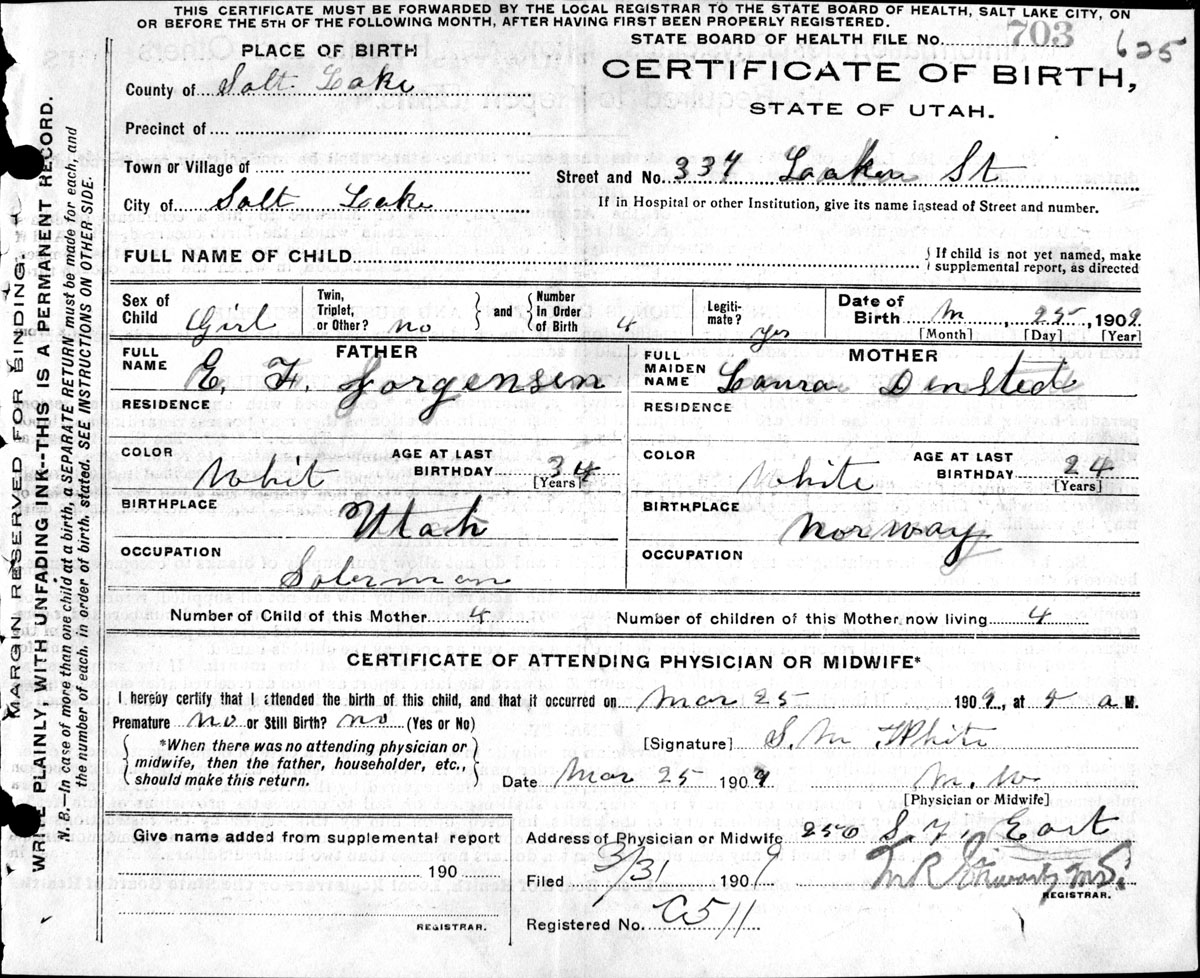 THIS CERTIFICATE MUST BE FORWARDED BY THE LOCAL REGISTRAR TO THE STATE BOARD OF HEALTH, SALT LAKE CITY, ON
OR BEFORE THE 5TH OF THE FOLLOWING MONTH, AFTER HAVING FIRST BEEN PROPERLY REGISTERED.
STATE BOARD OF HEALTH FILE No. 703 625
PLACE OF BIRTH
CERTIFICATE OF BIRTH,
STATE OF UTAH.
County of Salt Lake
Precinct of
Town or Village of
Street and No. 337 St
City of Salt Lake
If in Hospital or other Institution, give its name instead of Street and number.
FULL NAME OF CHILD
If child is not yet named, make
supplemental report, as directed
Sex of Child Girl
Twin, Triplet, or Other? no
and
Number In Order of Birth 4
Legiti-mate? yes
Date of Birth M, 25, 1909
[Month] [Day] [Year]
FATHER
FULL NAME E F Jorgensen
MOTHER
FULL MAIDEN NAME Laura Densted
RESIDENCE
RESIDENCE
COLOR Whit
AGE AT LAST BIRTHDAY 34
[Years]
COLOR White
AGE AT LAST BIRTHDAY 24
[Years]
BIRTHPLACE Utah
BIRTHPLACE Norway
OCCUPATION Salerman
OCCUPATION
Number of Child of this Mother 4
Number of children of this Mother now living 4
CERTIFICATE OF ATTENDING PHYSICIAN OR MIDWIFE*
I hereby certify that I attended the birth of this child, and that it occurred on Mar 25 1909, at a M.
Premature no or Still Birth? no (Yes or No)
*When there was no attending physician or
midwife, then the father, householder, etc.,
should make this return.
[Signature] S. M White
Date Mar 25 1909 M. W
[Physician or Midwife]
Give name added from supplemental report
190
REGISTRAR.
Address of Physician or Midwife 250 S. 7 East
Filed 3/31 1909
REGISTRAR.
Registered No. 511
MARGIN RESERVED FOR BINDING.
WRITE PLAINLY, WITH UNFADING INK--THIS IS A PERMANENT RECORD.
N. B.—In case of more than one child at a birth, a SEPARATE RETURN must be made for each, and
the number of each, in order of birth, stated. SEE INSTRUCTIONS ON OTHER SIDE.